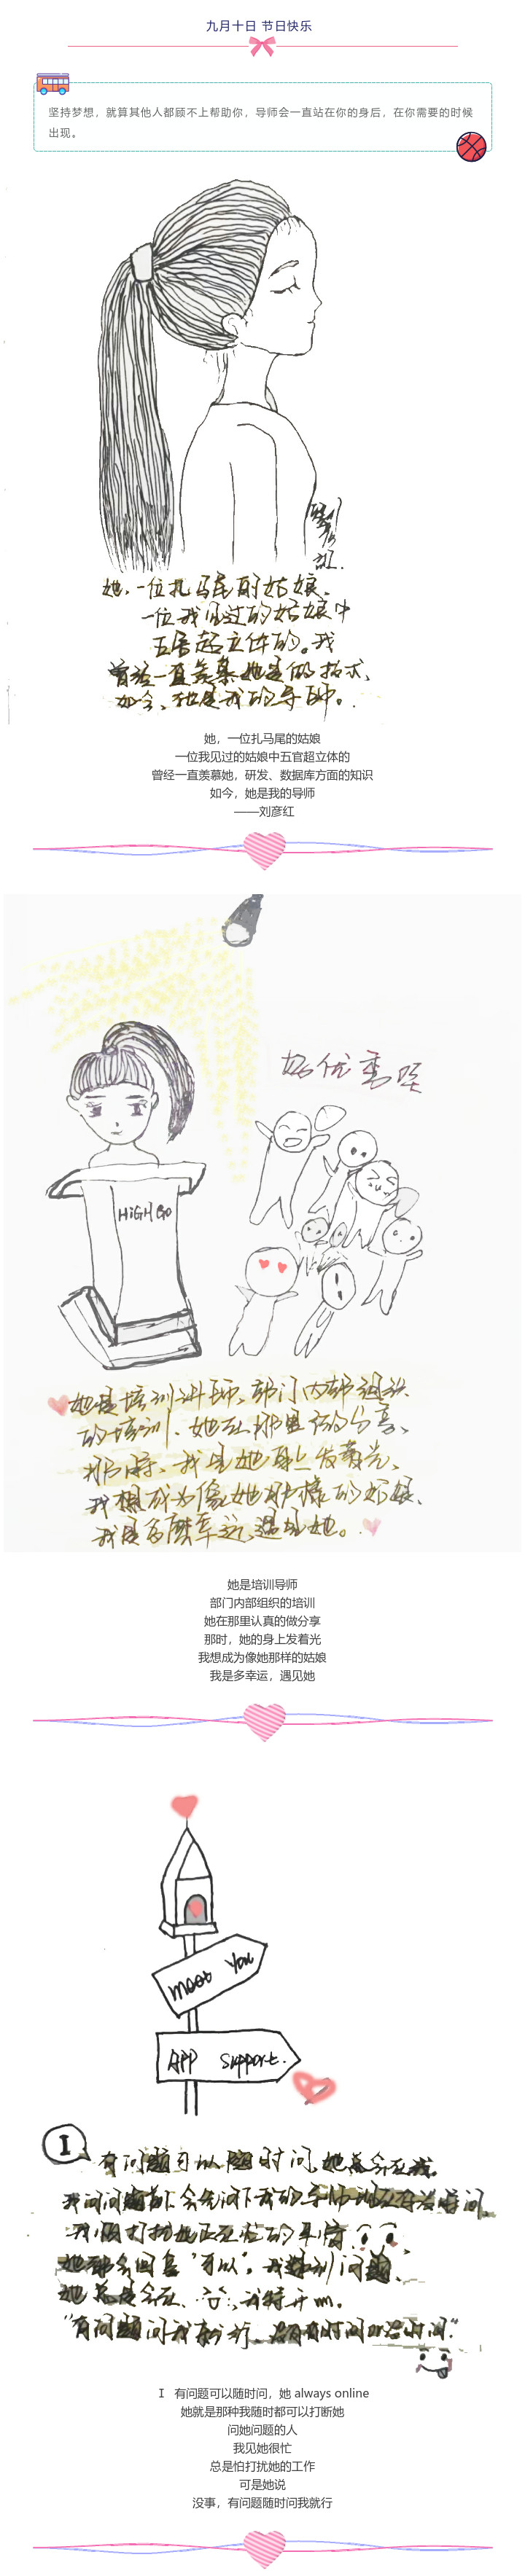 九月十日 节日快乐
坚持梦想，就算其他人都顾不上帮助你，导师会一直站在你的身后，在你需要的时候
出现。
她，一位扎马尾的姑娘
一位我见过的姑娘中
五官超立体的。我
曾经一直羡慕她
如今，她是我的导师。
她，一位扎马尾的姑娘
一位我见过的姑娘中五官超立体的
曾经一直羡慕她，研发、数据库方面的知识
如今，她是我的导师
——刘彦红
好优秀哇
HIGHGO
她是培训讲师，部门内部组织
的培训，她在那里做分享，
那时，我见她身上发着光，
我想成为像她那样的姑娘，
我是多么幸运，遇见她。
她是培训导师
部门内部组织的培训
她在那里认真的做分享
那时，她的身上发着光
我想成为像她那样的姑娘
我是多幸运，遇见她
meet you
APP support.
I
有问题可以随时问，她
I 有问题可以随时问，她 always online
她就是那种我随时都可以打断她
问她问题的人
我见她很忙
总是怕打扰她的工作
可是她说
没事，有问题随时问我就行